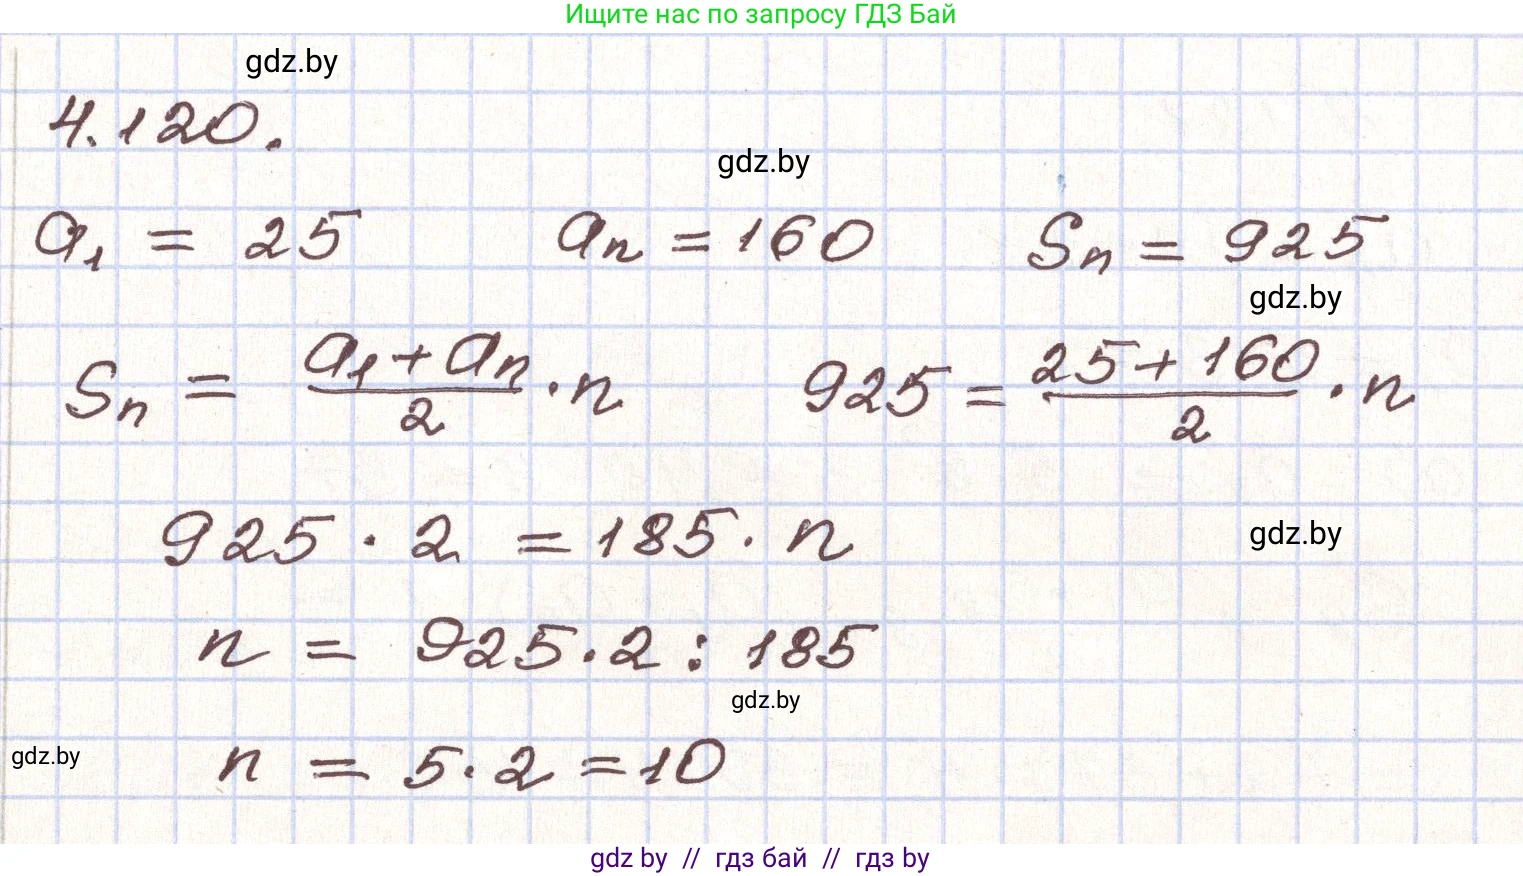 Ищите нас по запросу ГДЗ Бай
gdz.by
4.120.
gdz.by
a₁ = 25 aₙ = 160 Sₙ = 925
gdz.by
Sₙ = (a₁ + aₙ)/2 · n 925 = (25 + 160)/2 · n
925 · 2 = 185 · n
gdz.by
n = 925 · 2 : 185
gdz.by
gdz.by
n = 5 · 2 = 10
gdz by // гдз бай // гдз by